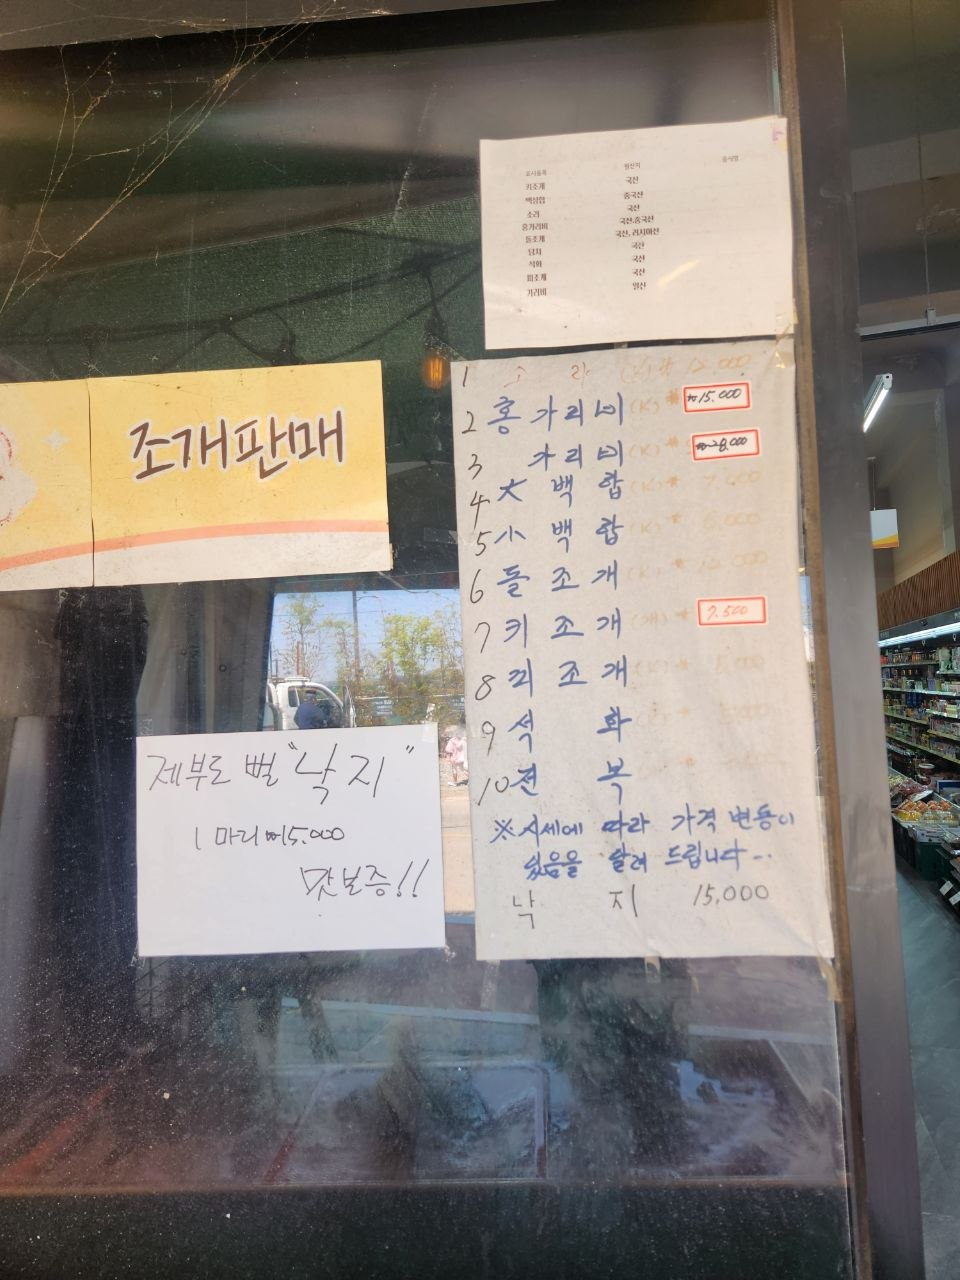 표시품목 원산지 음식명
키조개 국산
백상합 중국산
소라 국산
홍가리비 국산,중국산
돌조개 국산, 러시아산
담치 국산
석화 국산
피조개 국산
가리비 일산
조개판매
1 소 라 (K) ₩ 12.000
2 홍가리비 (K) ₩ ₩15.000
3 가리비 (K) ₩ ₩28,000
4 大 백 합 (K) ₩ 7.000
5 小 백 합 (K) ₩
6 돌 조 개 (K) ₩ 12.000
7 키 조 개 (개) ₩ 7.500
8 피 조 개 (K) ₩
9 석 화
10 전 복
※ 시세에 따라 가격 변동이
있음을 알려 드립니다...
낙 지 15,000
제부도 뻘 "낙지"
1 마리 ₩15.000
맛보증!!